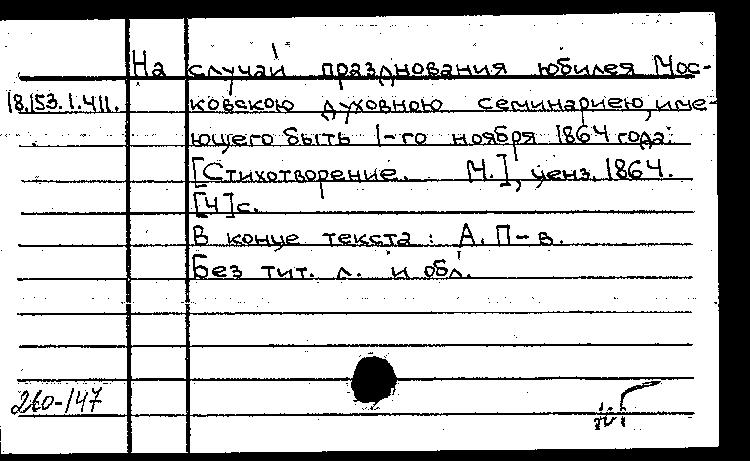 На случай празднования юбилея Мос-
18.153.1.411. ковскою духовною семинариею, име-
ющего быть 1-го ноября 1864 года:
[Стихотворение. М.], ценз. 1864.
[4]с.
В конце текста: А. П-в.
Без тит. л. и обл.
260-147